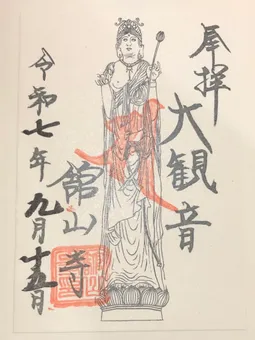 奉拝
大観音
舘山寺
令和七年九月十五日